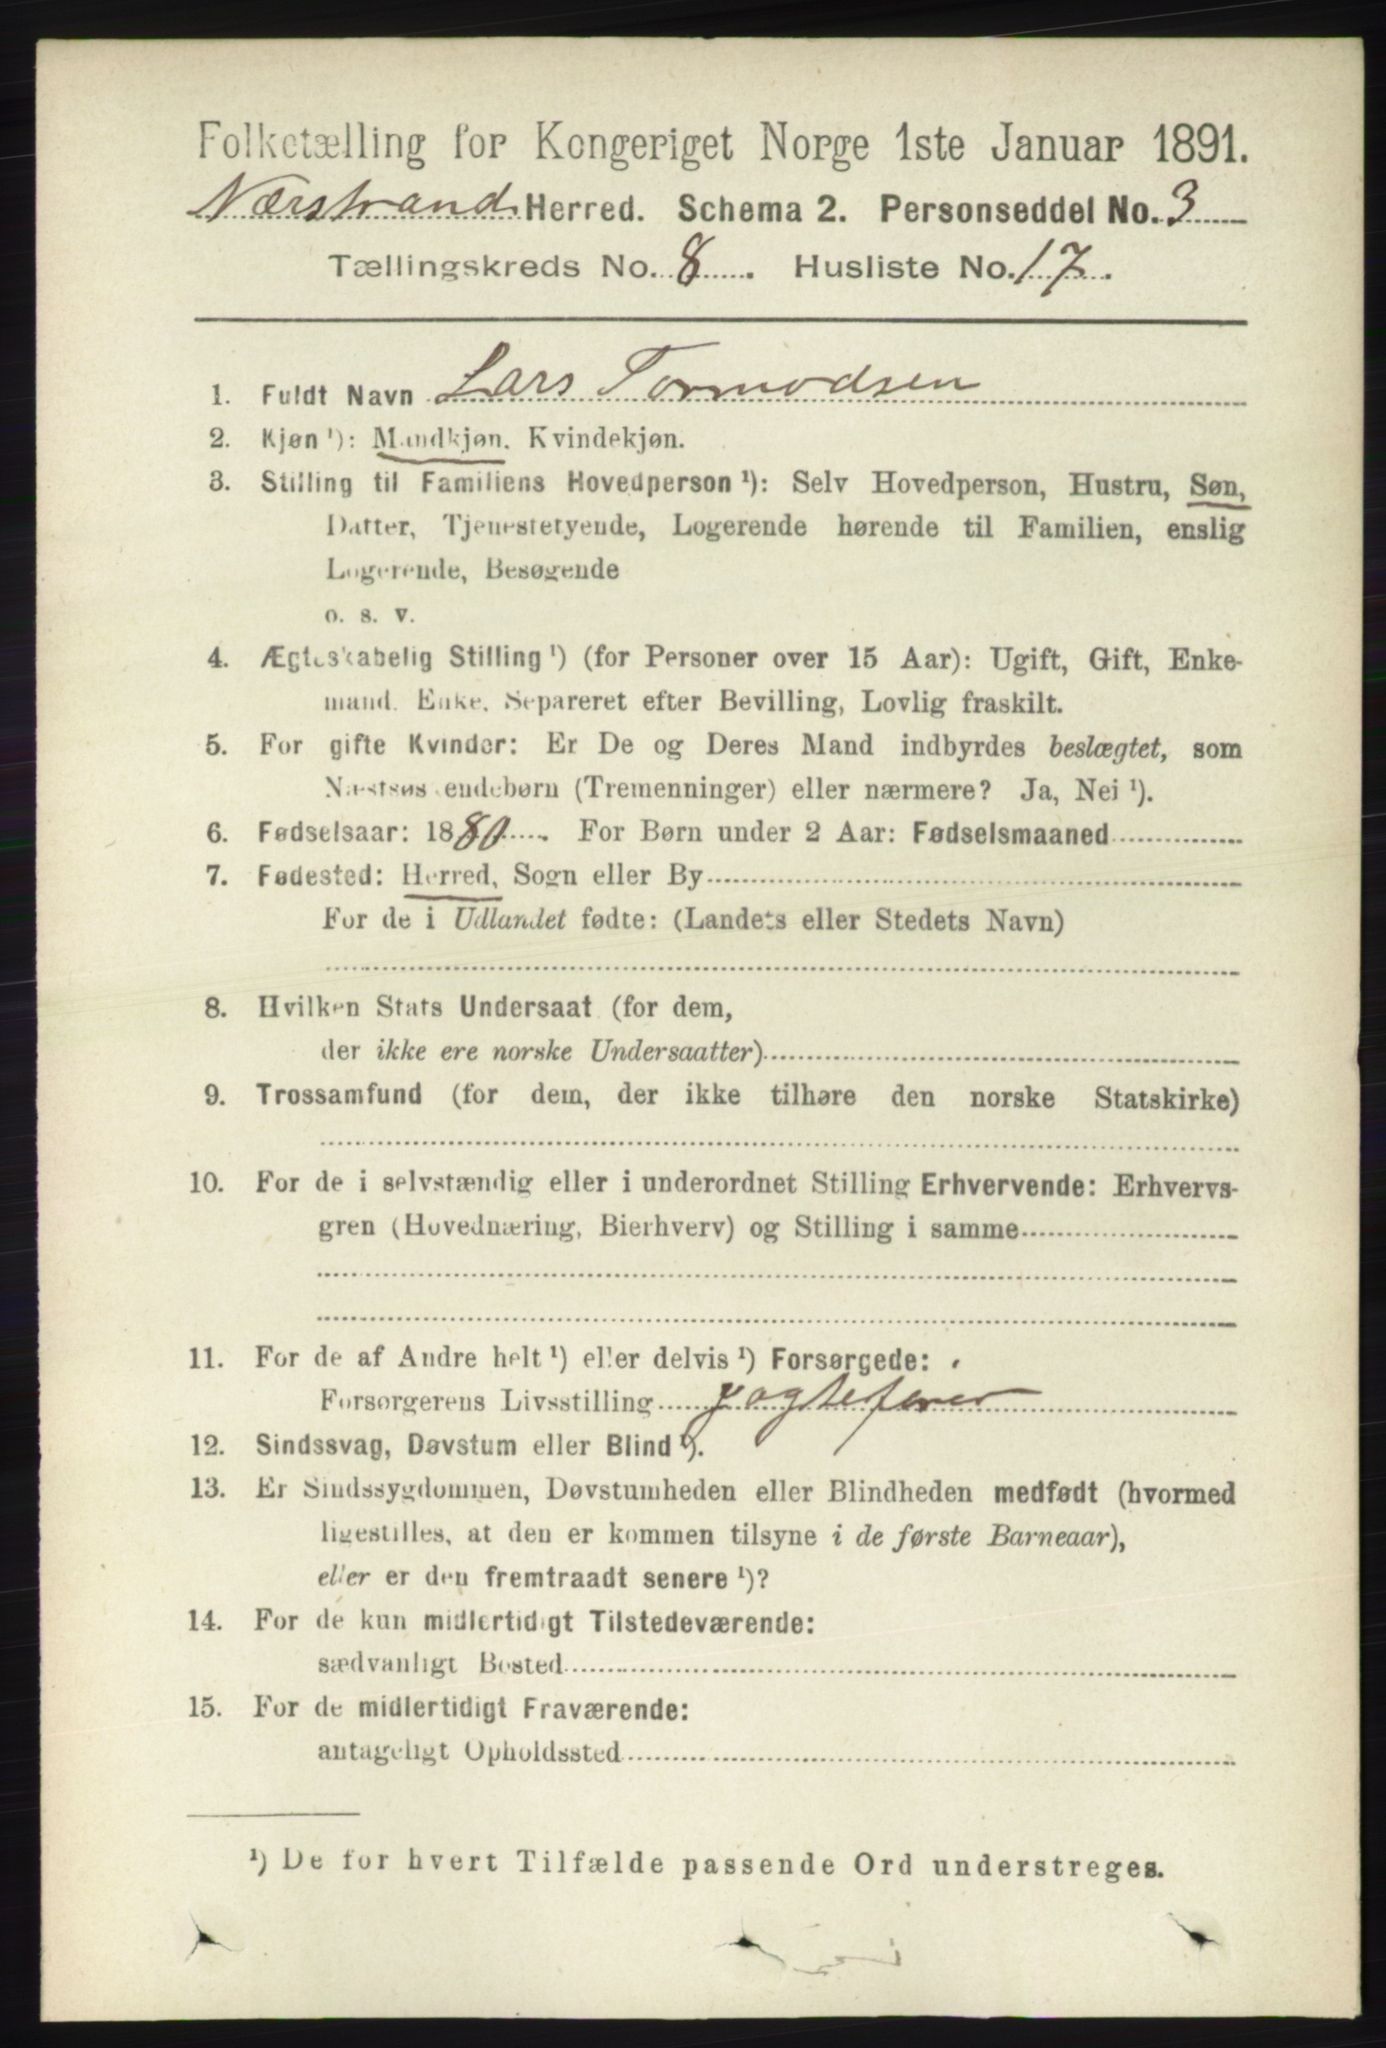 Folketælling for Kongeriget Norge 1ste Januar 1891.
Nærstrand Herred. Schema 2. Personseddel No. 3
Tællingskreds No. 8. Husliste No. 17.
1. Fuldt Navn Lars Tormodsen
2. Kjøn ¹): Mandkjøn. Kvindekjøn.
3. Stilling til Familiens Hovedperson ¹): Selv Hovedperson, Hustru, Søn,
Datter, Tjenestetyende, Logerende hørende til Familien, enslig
Logerende, Besøgende
o. s. v.
4. Ægteskabelig Stilling ¹) (for Personer over 15 Aar): Ugift, Gift, Enke-
mand, Enke, Separeret efter Bevilling, Lovlig fraskilt.
5. For gifte Kvinder: Er De og Deres Mand indbyrdes beslægtet, som
Næstsøskendebørn (Tremenninger) eller nærmere? Ja, Nei ¹).
6. Fødselsaar: 1880. For Børn under 2 Aar: Fødselsmaaned
7. Fødested: Herred, Sogn eller By
For de i Udlandet fødte: (Landets eller Stedets Navn)
8. Hvilken Stats Undersaat (for dem,
der ikke ere norske Undersaatter)
9. Trossamfund (for dem, der ikke tilhøre den norske Statskirke)
10. For de i selvstændig eller i underordnet Stilling Erhvervende: Erhvervs-
gren (Hovednæring, Bierhverv) og Stilling i samme
11. For de af Andre helt ¹) eller delvis ¹) Forsørgede:
Forsørgerens Livsstilling jagtefører
12. Sindssvag, Døvstum eller Blind ¹).
13. Er Sindssygdommen, Døvstumheden eller Blindheden medfødt (hvormed
ligestilles, at den er kommen tilsyne i de første Barneaar),
eller er den fremtraadt senere ¹)?
14. For de kun midlertidigt Tilstedeværende:
sædvanligt Bosted
15. For de midlertidigt Fraværende:
antageligt Opholdssted
¹) De for hvert Tilfælde passende Ord understreges.